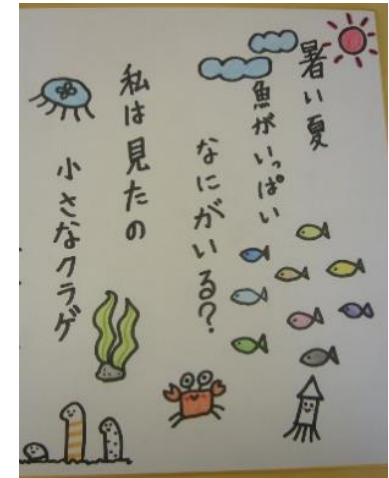 暑い夏
魚がいっぱい
なにがいる?
私は見たの
小さなクラゲ